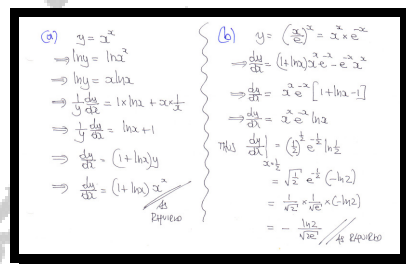 (a) y = x^x
⇒ lny = lnx^x
⇒ lny = xlnx
⇒ 1/y dy/dx = 1×lnx + x×1/x
⇒ 1/y dy/dx = lnx+1
⇒ dy/dx = (1+lnx)y
⇒ dy/dx = (1+lnx)x^x
AS REQUIRED
(b) y = (x/e)^x = x^x × e^-x
⇒ dy/dx = (1+lnx)x^x e^-x - e^-x x^x
⇒ dy/dx = x^x e^-x [1+lnx-1]
⇒ dy/dx = x^x e^-x lnx
THUS dy/dx | x=1/2 = (1/2)^1/2 e^-1/2 ln1/2
= √1/2 e^-1/2 (-ln2)
= 1/√2 × 1/√e × (-ln2)
= - ln2/√2e
AS REQUIRED